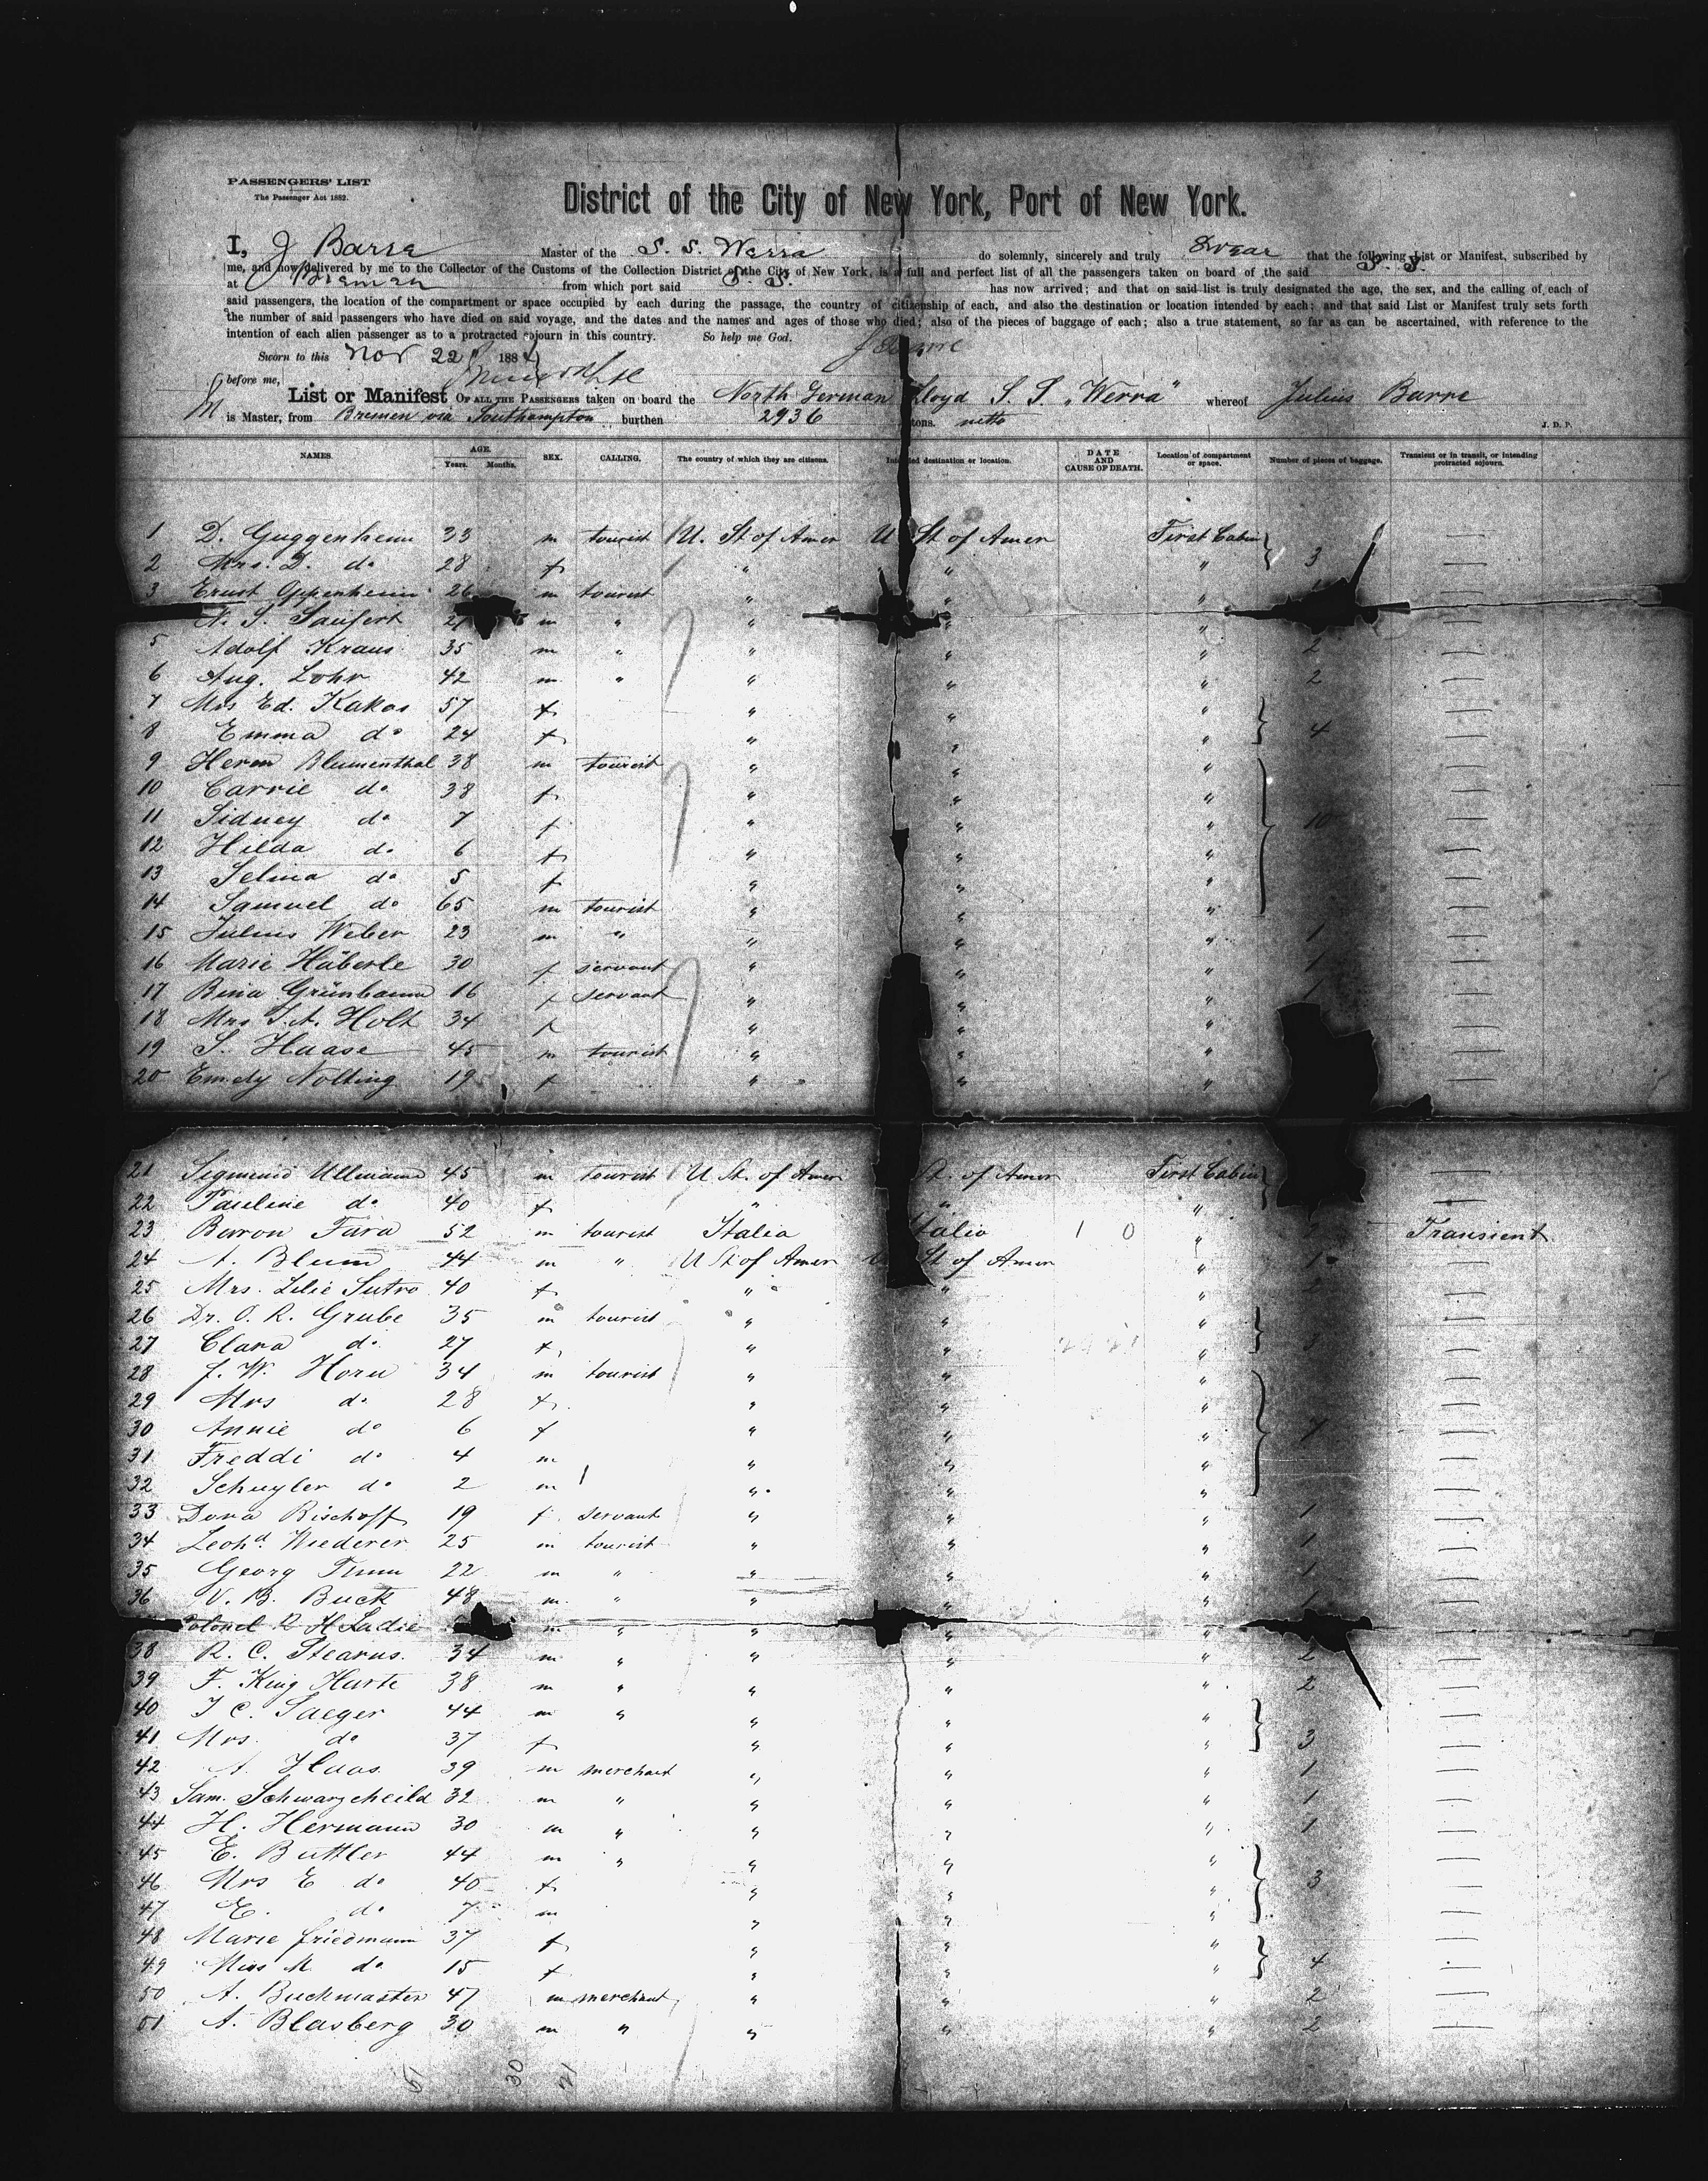 PASSENGERS' LIST
The Passenger Act 1882.
District of the City of New York, Port of New York.
I, J Barre Master of the S. S. Werra do solemnly, sincerely and truly Swear that the following List or Manifest, subscribed by
me, and now delivered by me to the Collector of the Customs of the Collection District of the City of New York, is a full and perfect list of all the passengers taken on board of the said S. S.
at Bremen from which port said S. S. has now arrived; and that on said list is truly designated the age, the sex, and the calling of each of
said passengers, the location of the compartment or space occupied by each during the passage, the country of citizenship of each, and also the destination or location intended by each; and that said List or Manifest truly sets forth
the number of said passengers who have died on said voyage, and the dates and the names and ages of those who died; also of the pieces of baggage of each; also a true statement, so far as can be ascertained, with reference to the
intention of each alien passenger as to a protracted sojourn in this country. So help me God. J Barre
Sworn to this Nov 22 188
before me,
List or Manifest OF ALL THE PASSENGERS taken on board the North German Lloyd S. S. "Werra" whereof Julius Barre
is Master, from Bremen via Southampton, burthen 2936 tons. netto
J. D. P.
NAMES. AGE. Years. Months. SEX. CALLING. The country of which they are citizens. Intended destination or location. DATE AND CAUSE OF DEATH. Location of compartment or space. Number of pieces of baggage. Transient or in transit, or intending protracted sojourn.
1 D. Guggenheim 33 m tourist U. St of Amer U St of Amer First Cabin
2 Mrs. D. do 28 f " " " 3
3 Ernst Oppenheim 26 m tourist " " "
N. S. Saufert 27 m " " " "
5 Adolf Kraus 35 m " " " " 2
6 Aug. Lohr 42 m " " " " 2
7 Mrs Ed. Kakas 57 f " " "
8 Emma do 24 f " " " 4
9 Herm Blumenthal 38 m tourist " " "
10 Carrie do 38 f " " "
11 Sidney do 7 f " " " 10
12 Hilda do 6 f " " "
13 Selma do 5 f " " "
14 Samuel do 65 m tourist " " "
15 Julius Weber 23 m " " " " 1
16 Marie Häberle 30 f servant " " " 1
17 Bina Grünbaum 16 f servant " " " 1
18 Mrs S. A. Holt 34 f " " "
19 S. Haase 45 m tourist " " "
20 Emely Nolting 19 f " " "
21 Sigmund Ullmann 45 m tourist U St. of Amer St. of Amer First Cabin
22 Pauline do 40 f " " "
23 Baron Fava 52 m tourist Italia talia 1 0 " 2 Transient
24 A. Blum 44 m " U St of Amer U St of Amer " 1
25 Mrs. Lilie Sutro 40 f " " " 2
26 Dr. O. R. Grube 35 m tourist " " "
27 Clara do 27 f " " " 3
28 J. W. Horn 34 m tourist " " "
29 Mrs do 28 f " " "
30 Annie do 6 f " " " 7
31 Freddi do 4 m " " "
32 Schuyler do 2 m " " "
33 Dora Bischoff 19 f servant " " " 1
34 Leohd. Wiederer 25 m tourist " " " 1
35 Georg Timm 22 m " " " " 1
36 N. B. Buck 48 m " " " " 1
Colonel R H Sadie m " " " "
38 R. C. Stearns 34 m " " " " 2
39 F. King Harte 38 m " " " " 2
40 T C. Saeger 44 m " " " "
41 Mrs. do 37 f " " " 3
42 A. Haas 39 m merchant " " " 1
43 Sam. Schwarzcheild 32 m " " " " 1
44 H. Hermann 30 m " " " " 1
45 E. Buttler 44 m " " " "
46 Mrs E do 40 f " " " 3
47 E. do 7 m " " "
48 Marie Friedmann 37 f " " "
49 Miss M. do 15 f " " " 4
50 A. Buchmaster 47 m merchant " " " 2
51 A. Blasberg 30 m " " " " 2
51 30 21